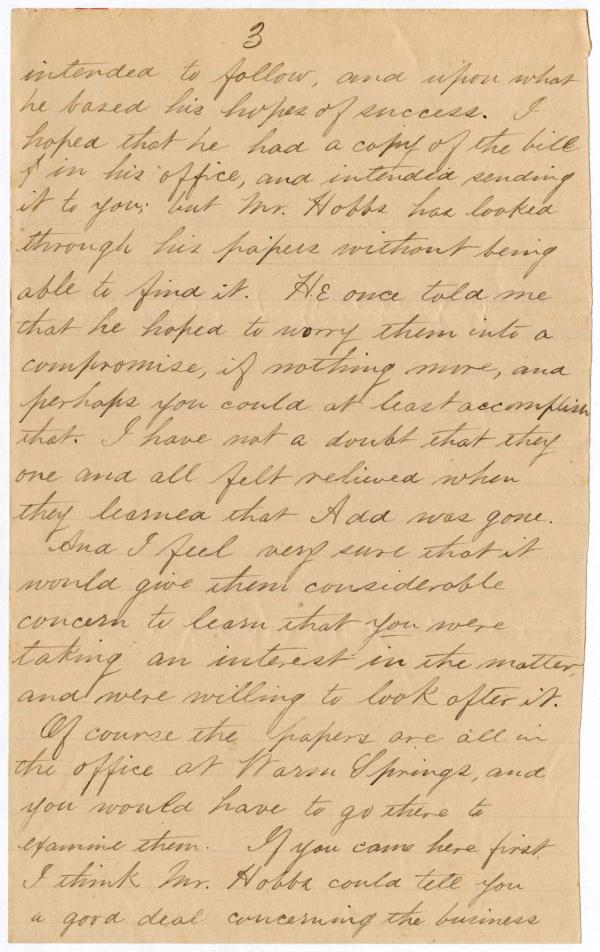 3
intended to follow, and upon what
he based his hopes of success. I
hoped that he had a copy of the bill
in his office, and intended sending
it to you; but Mr. Hobbs has looked
through his papers without being
able to find it. HE once told me
that he hoped to worry them into a
compromise, if nothing more, and
perhaps you could at least accomplish
that. I have not a doubt that they
one and all felt relieved when
they learned that Add was gone.
And I feel very sure that it
would give them considerable
concern to learn that you were
taking an interest in the matter,
and were willing to look after it.
Of course the papers are all in
the office at Warm Springs, and
you would have to go there to
examine them. If you came here first
I think Mr. Hobbs could tell you
a good deal concerning the business